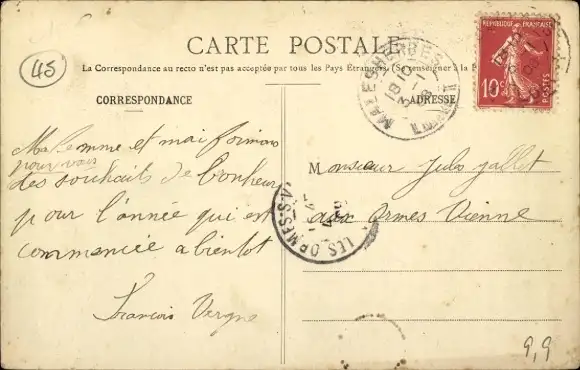 CARTE POSTALE
45
La Correspondance au recto n'est pas acceptée par tous les Pays Étrangers. (Se renseigner à la P
CORRESPONDANCE
ADRESSE
RÉPUBLIQUE FRANÇAISE
10c
POSTES
MALESHERBES
LOIRET
Ma femme et mai formons
pour vous
des souhaits de bonheur
pour l'année qui est
commencée a bientot
François Vergne
Monsieur Jules gallet
aux Ormes Vienne
LES ORMES-S-V
9,9